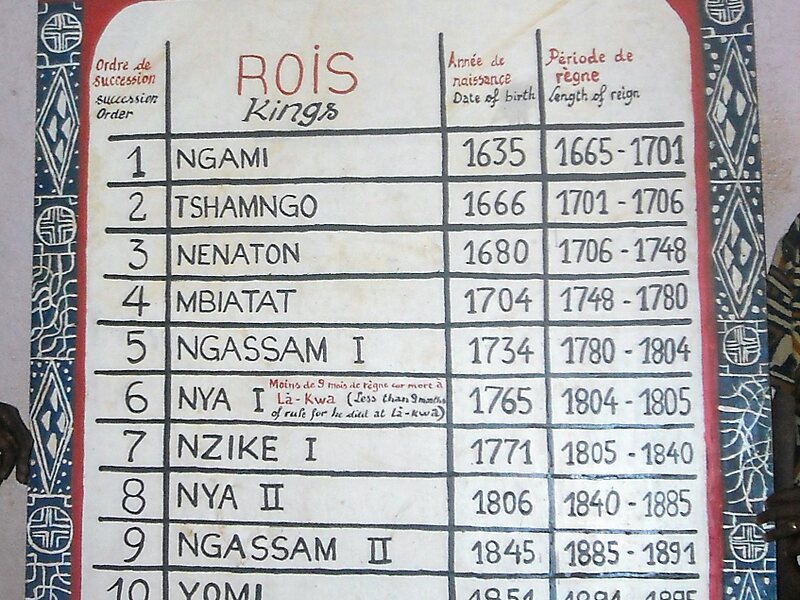 Ordre de
succession
succession
Order
ROIS
Kings
Année de
naissance
Date of birth
Période de
règne
length of reign
1 NGAMI 1635 1665-1701
2 TSHAMNGO 1666 1701-1706
3 NENATON 1680 1706-1748
4 MBIATAT 1704 1748-1780
5 NGASSAM I 1734 1780-1804
6 NYA I Moins de 9 mois de règne car mort à
Là-Kwa (Less than 9 months
of rule for he died at Là-kwa) 1765 1804-1805
7 NZIKE I 1771 1805-1840
8 NYA II 1806 1840-1885
9 NGASSAM II 1845 1885-1891
10 YOMI 1851 1891-1895